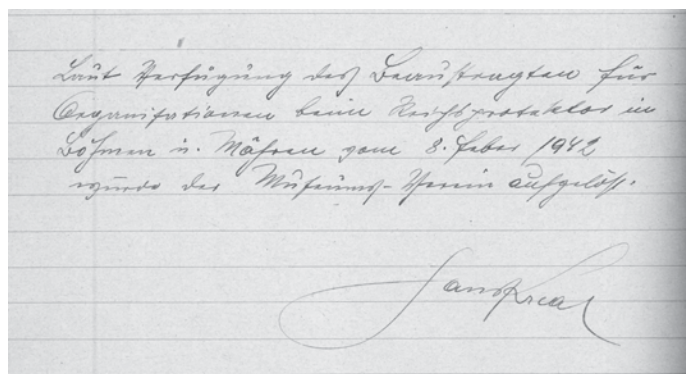 Laut Verfügung des Beauftragten für
Organisationen beim Reichsprotektor in
Böhmen u. Mähren vom 8. Feber 1942
wurde der Museums-Verein aufgelöst.